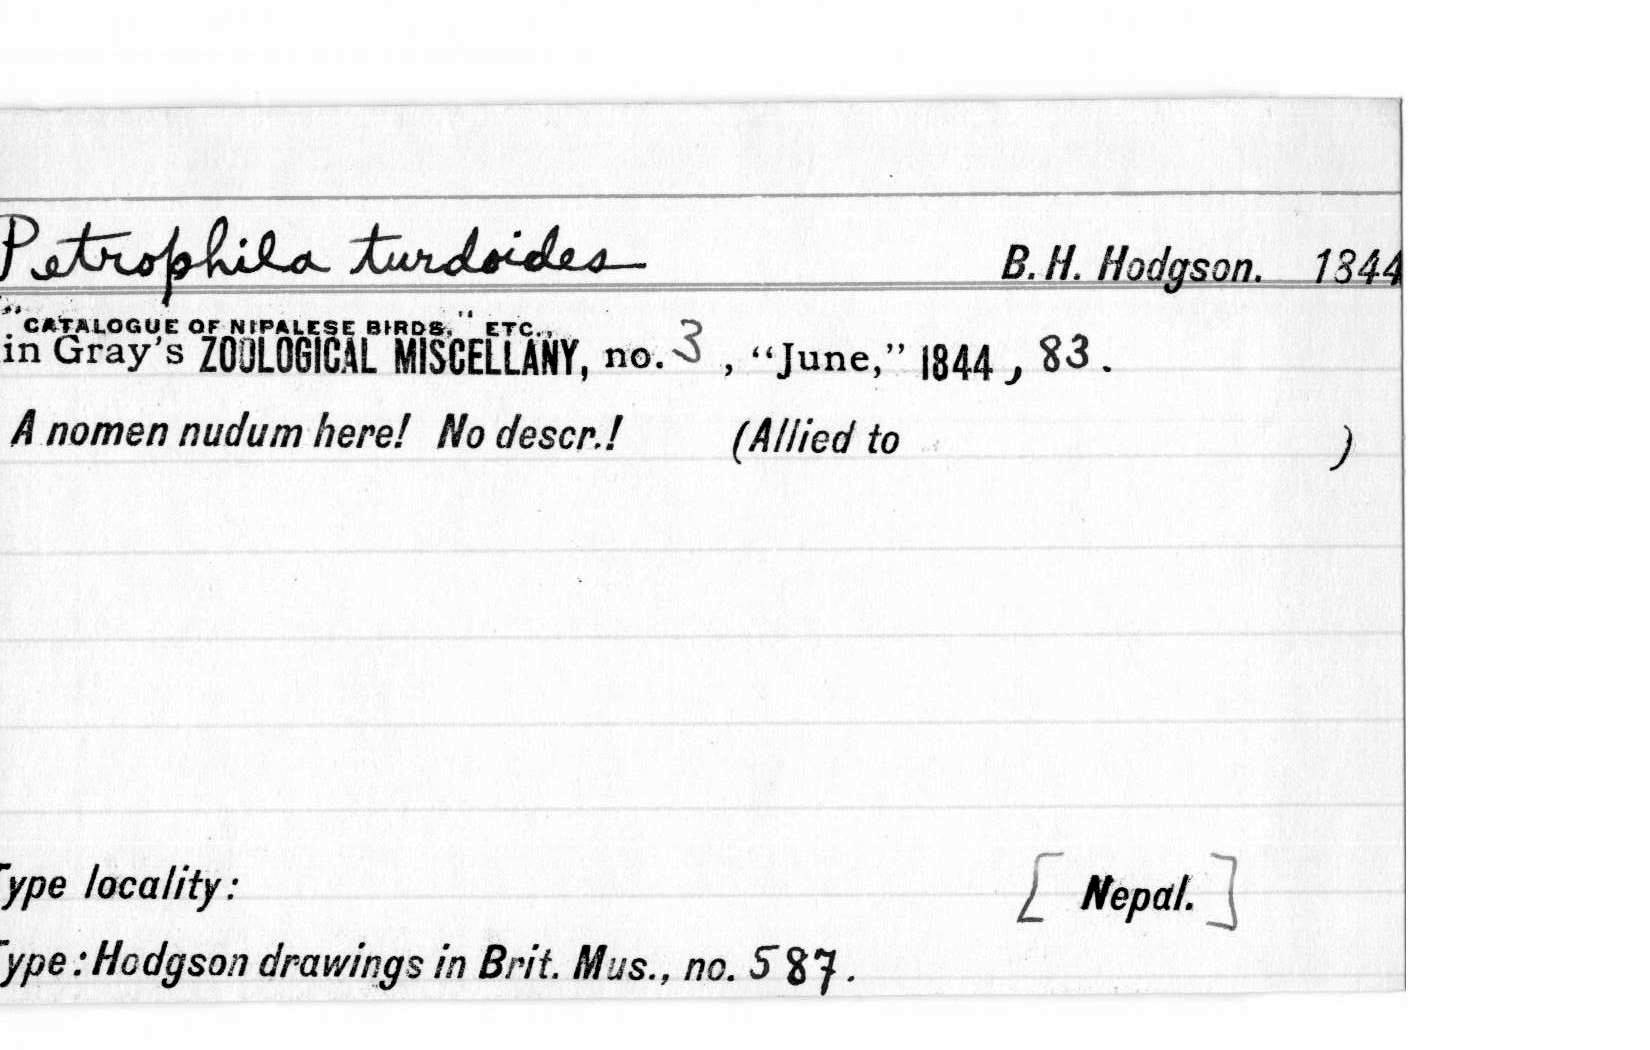 Petrophila turdoides B. H. Hodgson. 1844
"CATALOGUE OF NIPALESE BIRDS," ETC.,
in Gray's ZOOLOGICAL MISCELLANY, no. 3, "June," 1844, 83.
A nomen nudum here! No descr.! (Allied to )
Type locality: [Nepal.]
Type: Hodgson drawings in Brit. Mus., no. 587.